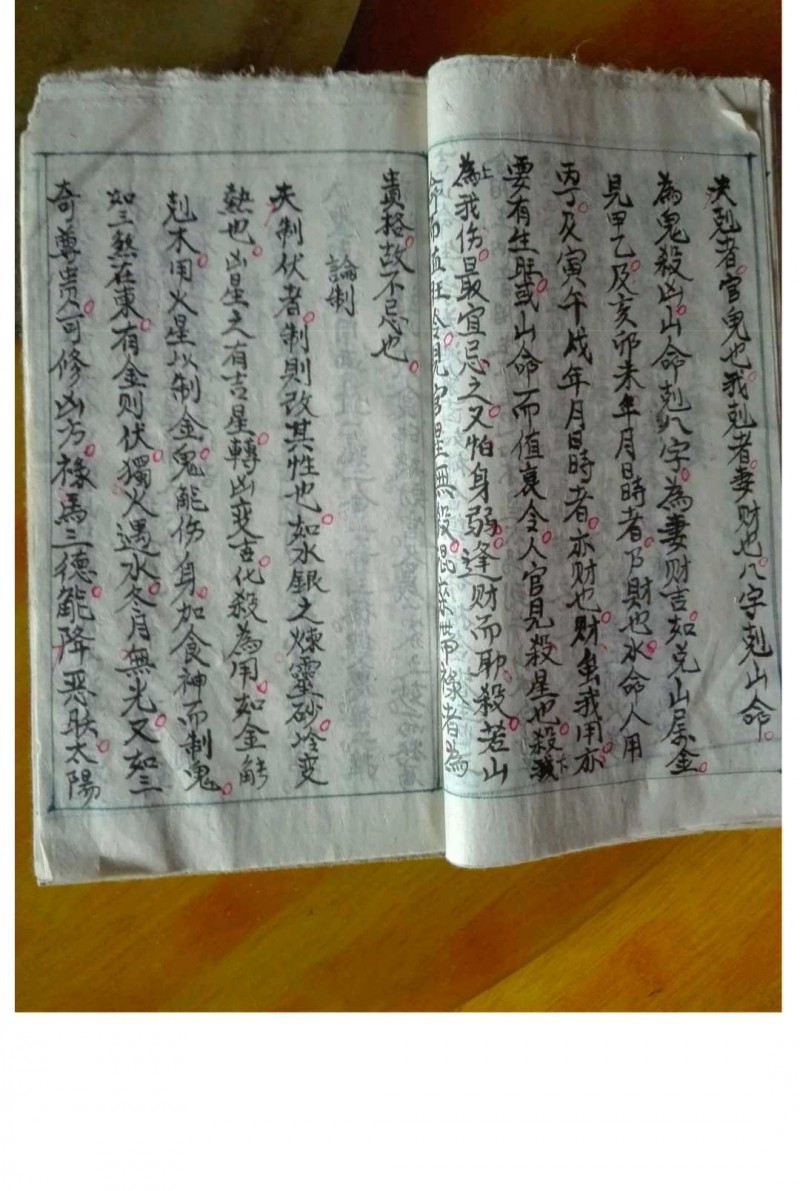 夫剋者。官鬼也。我剋者。妻财也。八字剋山命。
為鬼殺凶。山命剋八字。為妻财吉。如兑山屬金。
見甲乙。及亥卯未年月日時者。乃財也。水命人用
丙丁。及寅午戌年月日時者。亦财也。财虽我用。亦
要有生旺。或山命而值衰令。人官見殺星也。殺
為我伤。最宜忌之。又怕身弱。逢财而耶殺。若山
命而值旺令。見官星無殺混杂。带禄者為
貴格。故不忌也。
論制
夫制伏者。制則改其性也。如水銀之煉靈砂。冷变
熱也。凶星之有吉星。轉凶变吉。化殺為用。如金能
剋木。用火星以制金。鬼能伤身。加食神而制鬼。
如三煞在東。有金则伏。獨火遇水。冬月無光。又如三
奇尊贵。可修凶方。祿馬三德。能降恶眹。太陽